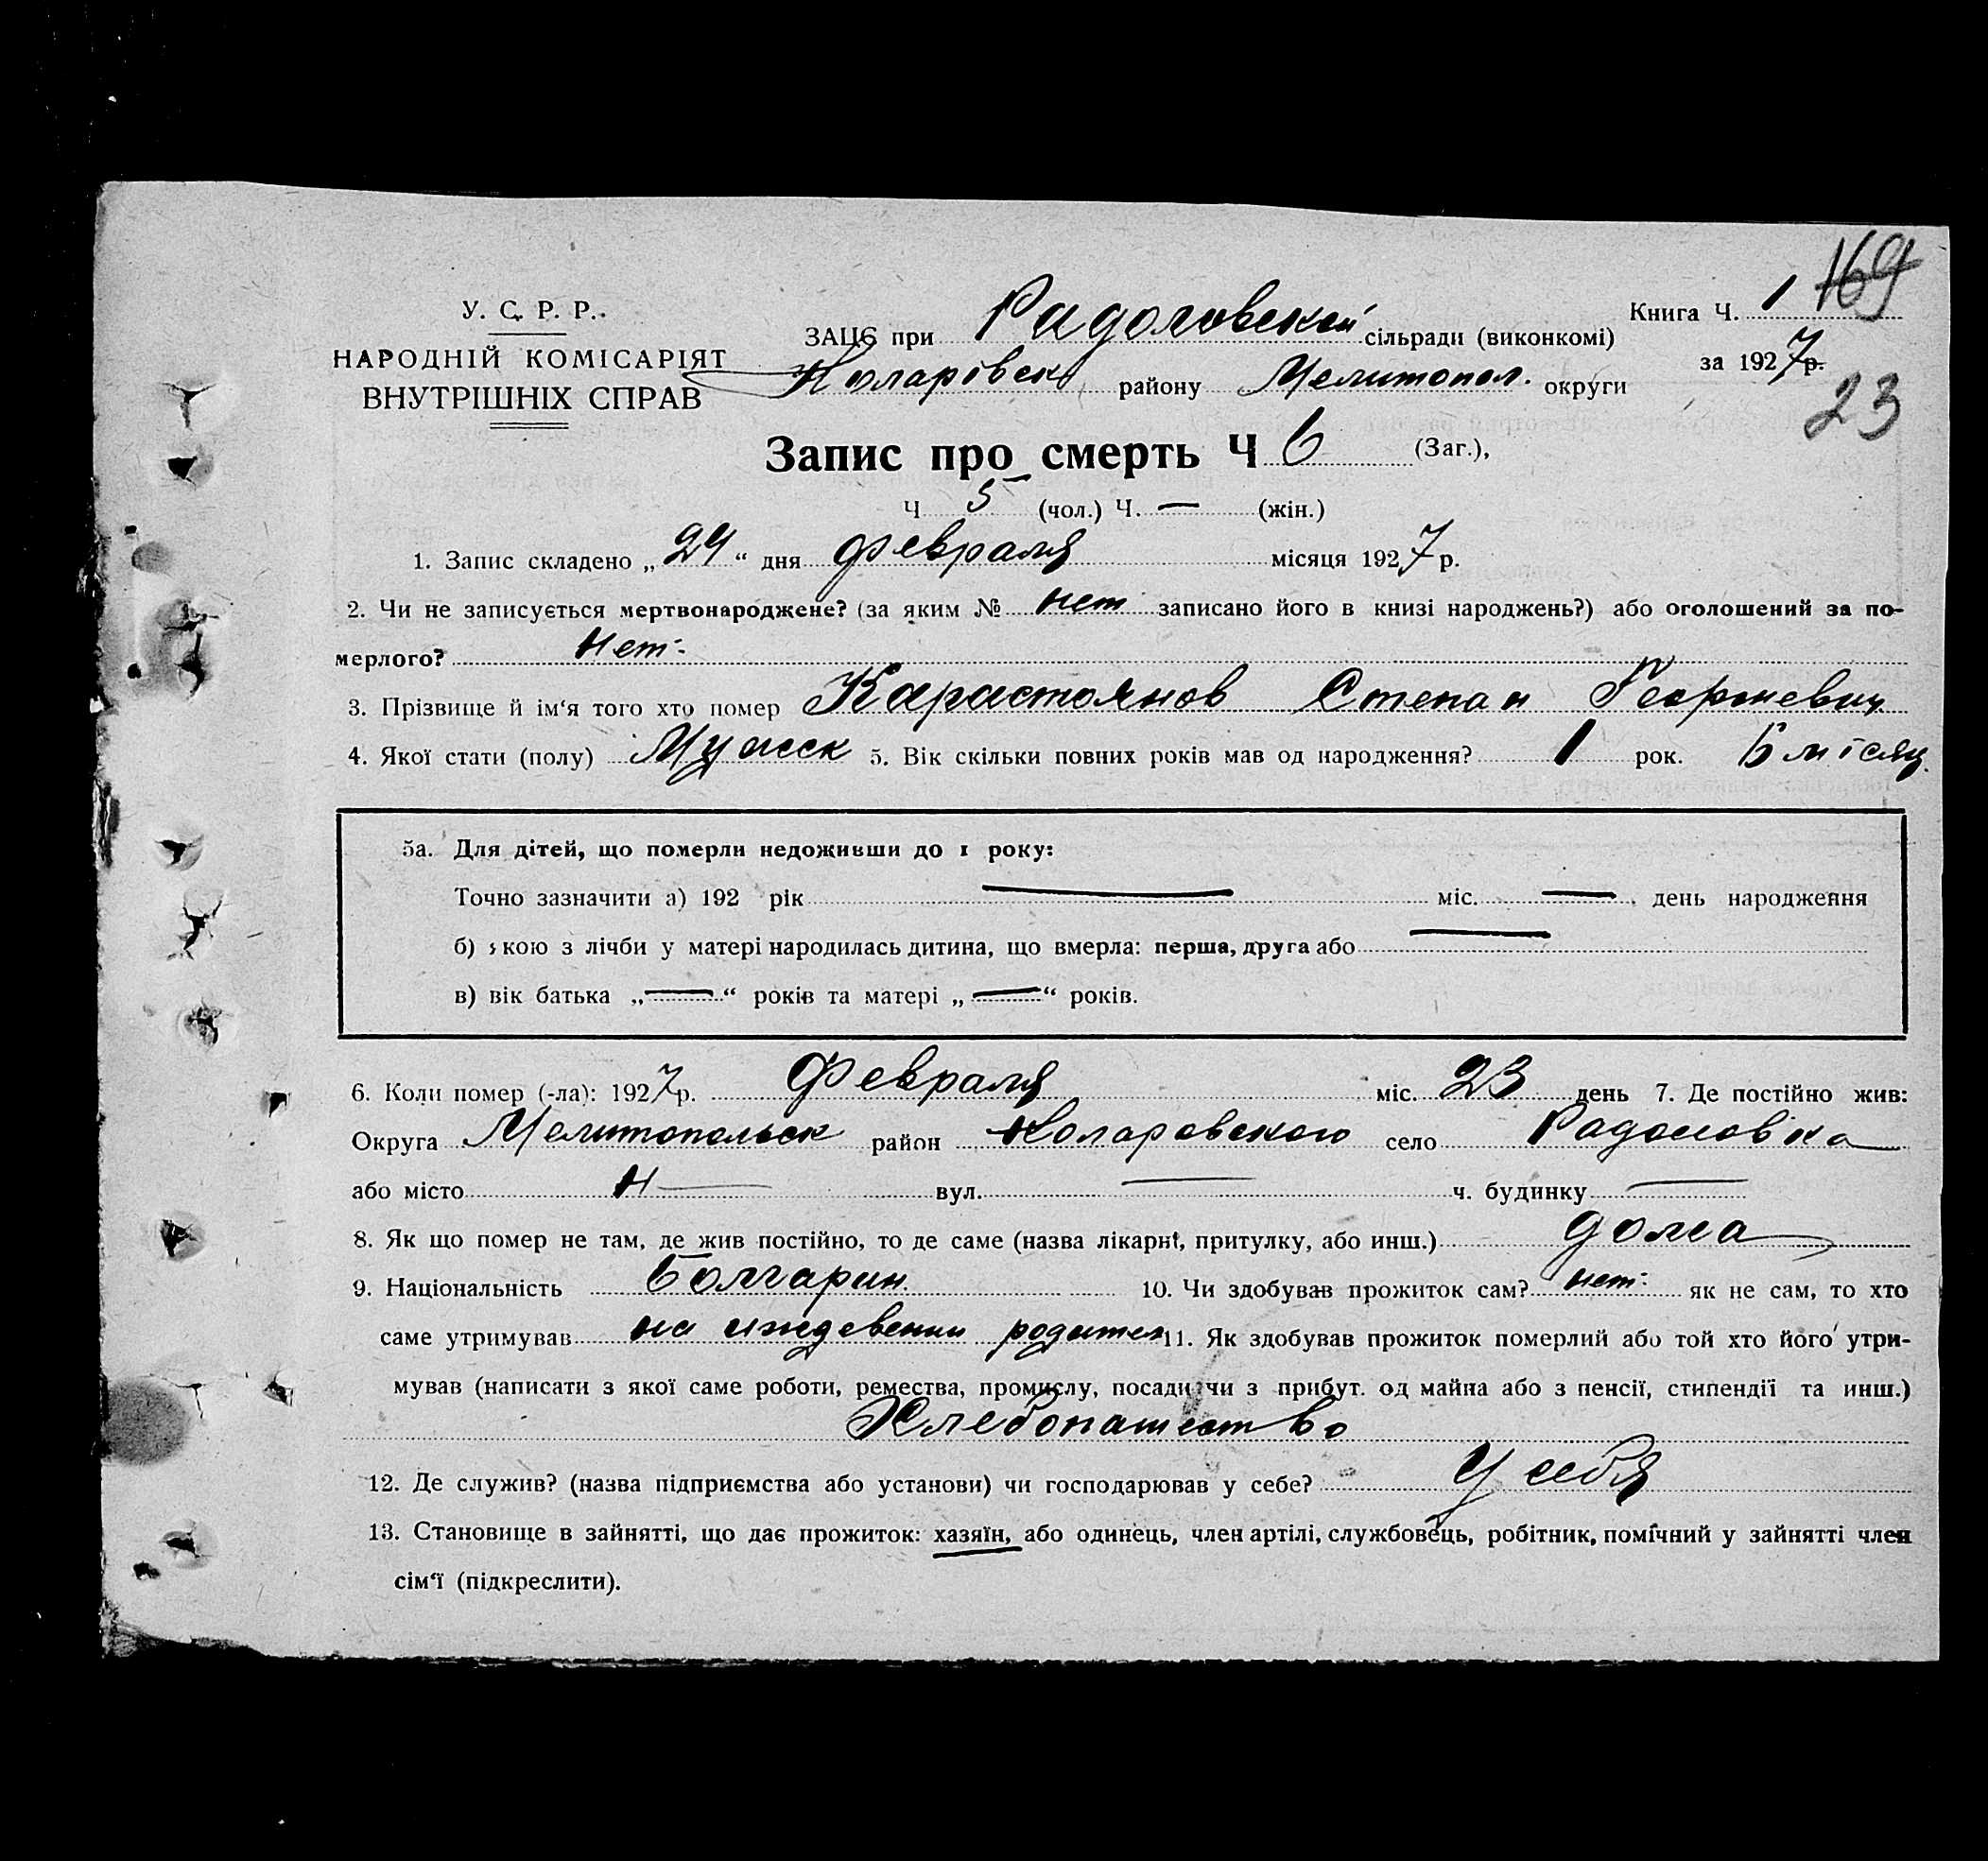 169
У. С. Р. Р.
НАРОДНІЙ КОМІСАРІЯТ
ВНУТРІШНІХ СПРАВ
ЗАЦС при Радоловской сільради (виконкомі)
Коларовск району Мелитопол. округи
Книга Ч. 1
за 1927 р.
23
Запис про смерть Ч 6 (Заг.),
Ч 5 (чол.) Ч. — (жін.)
1. Запис складено „24“ дня Февраля місяця 1927 р.
2. Чи не записується мертвонароджене? (за яким № нет записано його в книзі народжень?) або оголошений за по-
мерлого? Нет.
3. Прізвище й ім'я того хто помер Карастоянов Степан Георгиевич
4. Якої стати (полу) Мужск 5. Вік скільки повних років мав од народження? 1 рок. 5 місяц.
5а. Для дітей, що померли недоживши до 1 року:
Точно зазначити а) 192 рік — міс. — день народження
б) якою з лічби у матері народилась дитина, що вмерла: перша, друга або —
в) вік батька „—“ років та матері „—“ років.
6. Коли помер (-ла): 1927 р. Февраля міс. 23 день 7. Де постійно жив:
Округа Мелитопольск район Коларовского село Радоловка
або місто Н— вул. — ч. будинку —
8. Як що помер не там, де жив постійно, то де саме (назва лікарні, притулку, або инш.) дома
9. Національність Болгарин. 10. Чи здобував прожиток сам? нет. як не сам, то хто
саме утримував на иждевении родител 11. Як здобував прожиток померлий або той хто його утри-
мував (написати з якої саме роботи, ремества, промислу, посади чи з прибут. од майна або з пенсії, стипендії та инш.)
Хлебопашество
12. Де служив? (назва підприємства або установи) чи господарював у себе? У себя
13. Становище в зайнятті, що дає прожиток: хазяїн, або одинець, член артілі, службовець, робітник, помічний у зайнятті член
сім'ї (підкреслити).